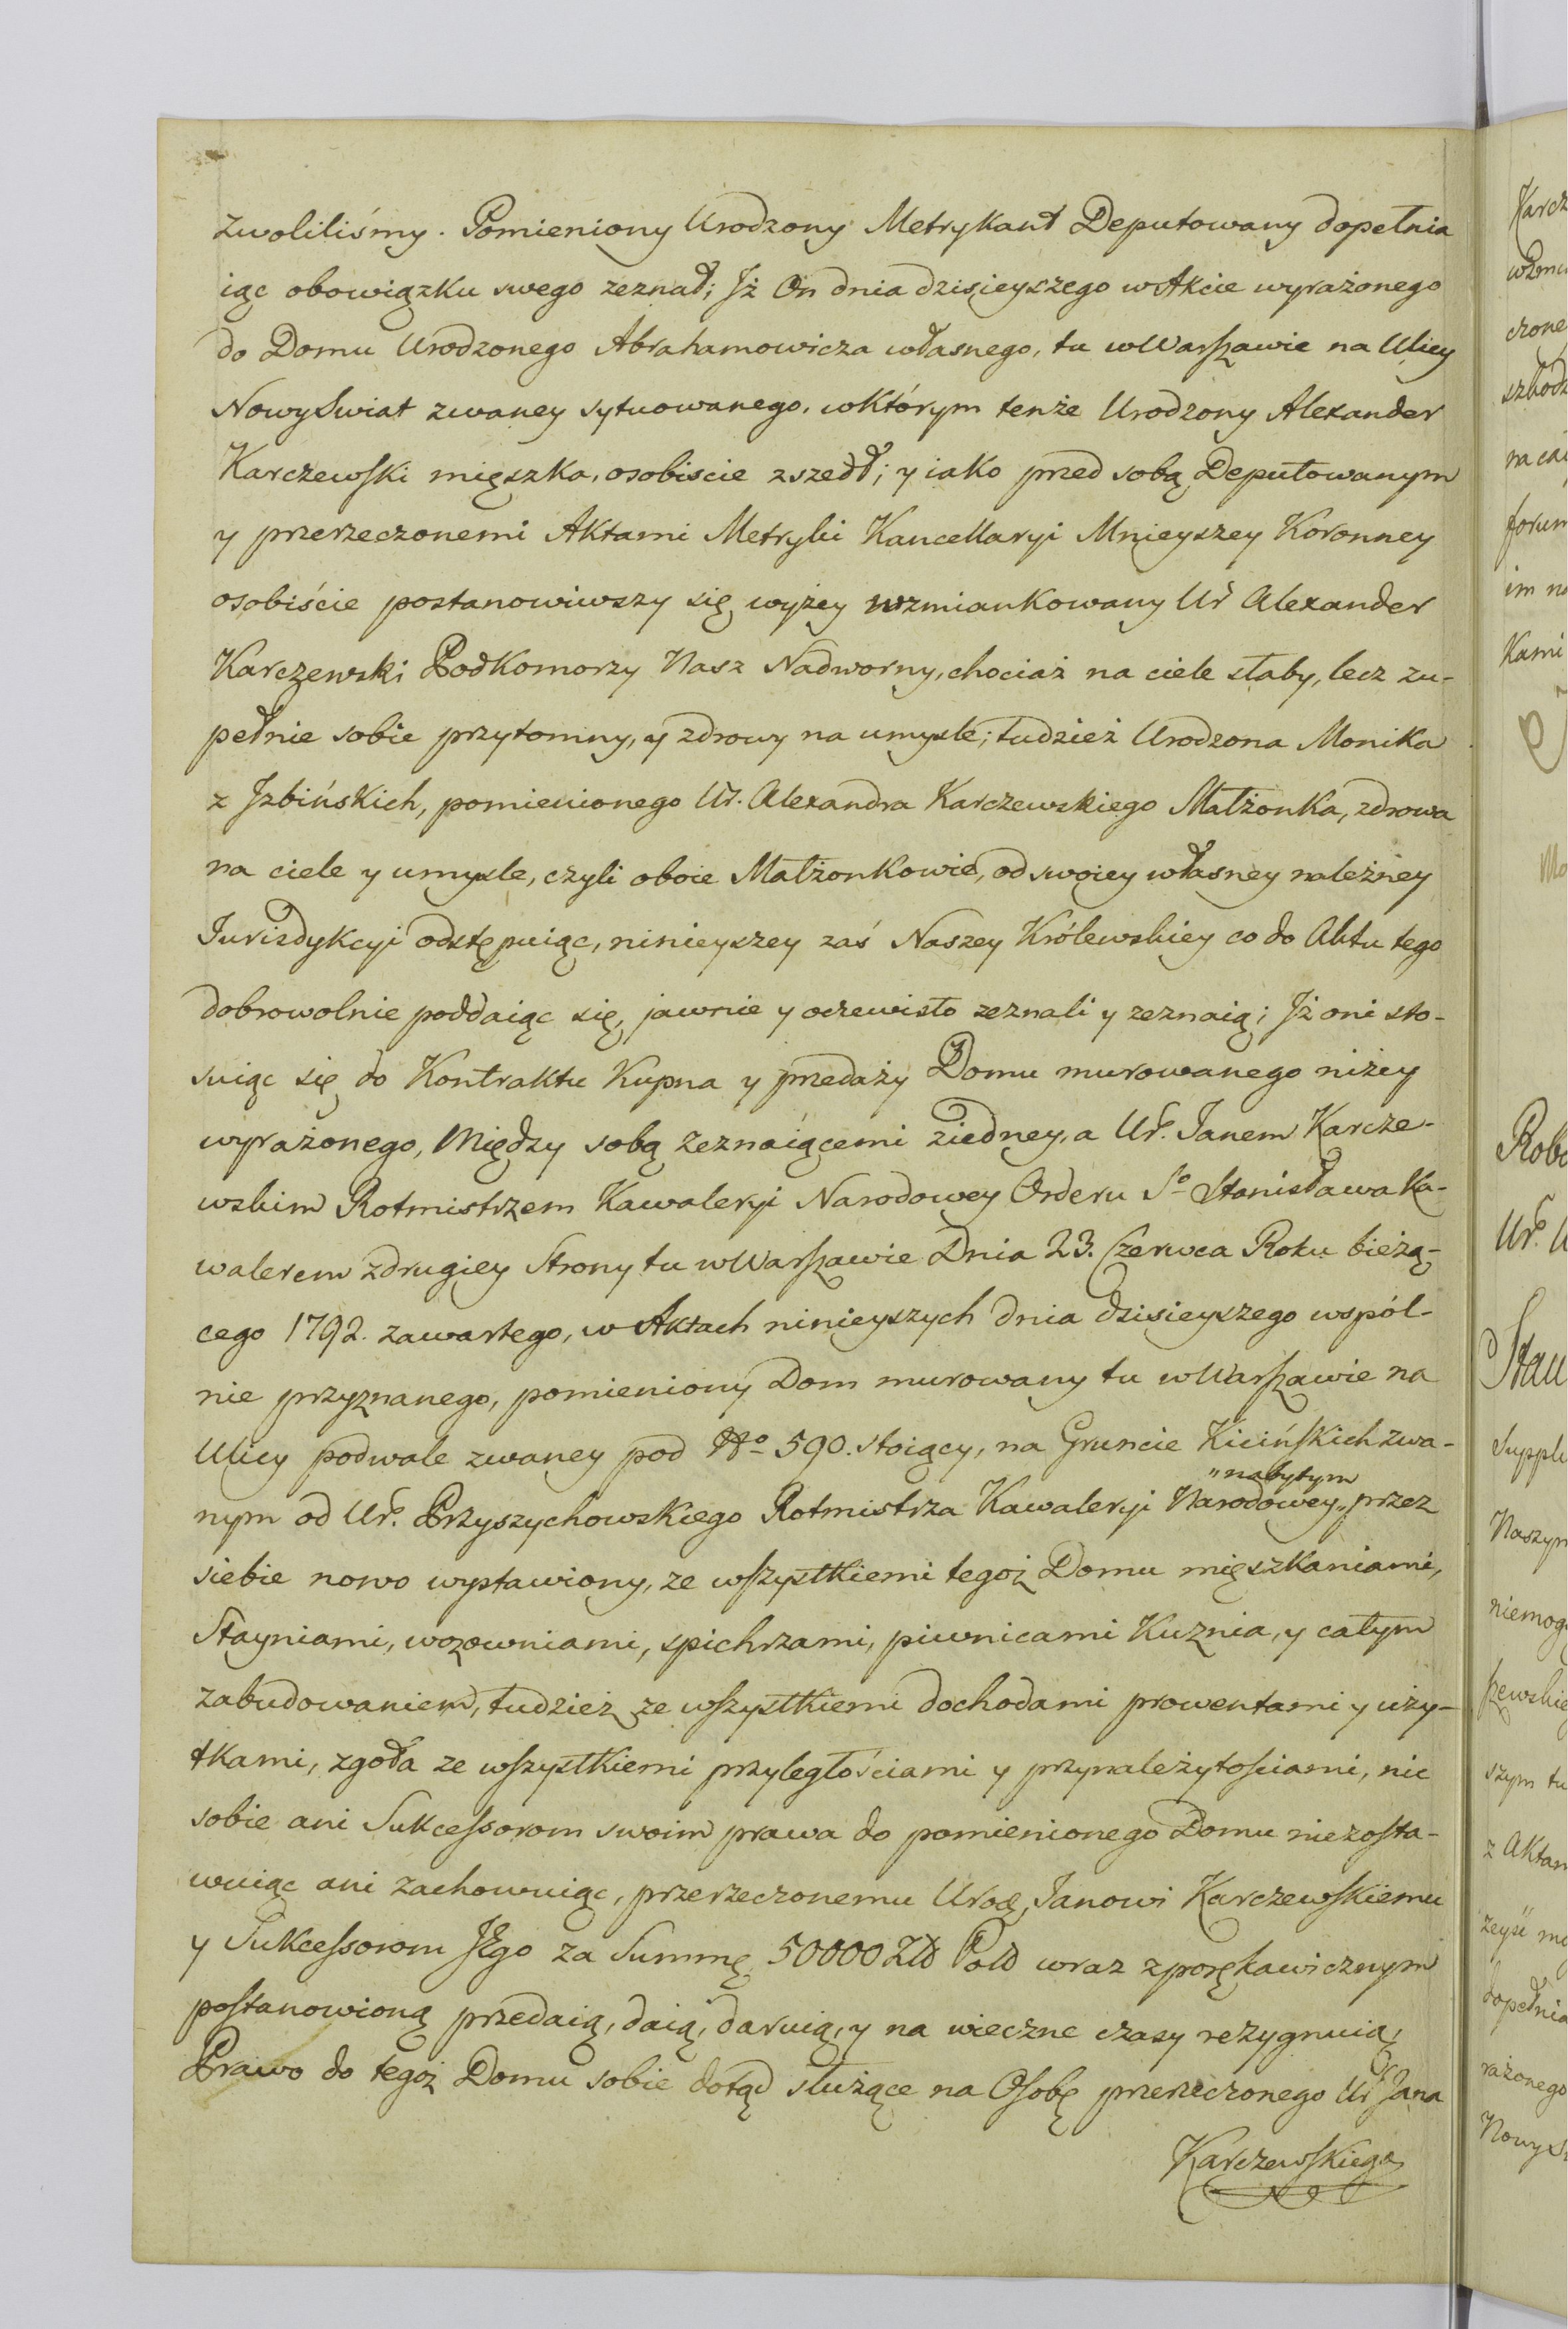 zwoliliśmy. Pomieniony Urodzony Metrykant Deputowany dopełnia
iąc obowiązku swego zeznał; Jż On dnia dzisieyszego w Akcie wyrażonego
do Domu Urodzonego Abrahamowicza własnego, tu w Warszawie na Ulicy
Nowy Swiat zwaney sytuowanego, w którym tenże Urodzony Alexander
Karczewski mięszka, osobiscie zszedł; y iako przed sobą Deputowanym
y przerzeczonemi Aktami Metryki Kancellaryi Mnieyszey Koronney
osobiście postanowiwszy się wyżey wzmiankowany Ur Alexander
Karczewski Podkomorzy Nasz Nadworny, chociaż na ciele słaby, lecz zu-
pełnie sobie przytomny, y zdrowy na umysle; tudzież Urodzona Monika
z Jzbińskich, pomienionego Ur. Alexandra Karczewskiego Małżonka, zdrowa
na ciele y umysle, czyli oboie Małżonkowie, od swoiey własney należney
Jurisdykcyi odstępuiąc, ninieyszey zaś Naszey Królewskiey co do Aktu tego
dobrowolnie poddaiąc się, jawnie y oczewisto zeznali y zeznaią; Jż oni sto-
suiąc się do Kontraktu Kupna y przedaży Domu murowanego niżey
wyrażonego, Między sobą zeznaiącemi ziedney, a Ur. Janem Karcze-
wskim Rotmistrzem Kawaleryi Narodowey Orderu So Stanisława Ka-
walerem zdrugiey Strony tu w Warszawie Dnia 23. Czerwca Roku bieżą-
cego 1792. zawartego, w Aktach ninieyszych dnia dzisieyszego wspól-
nie przyznanego, pomieniony Dom murowany tu w Warszawie na
Ulicy podwale zwaney pod No 590. stoiący, na Gruncie Kicińskich zwa-
"nabytym
nym od Ur. Przyszychowskiego Rotmistrza Kawaleryi Narodowey" przez
siebie nowo wystawiony, ze wszystkiemi tegoż Domu mięszkaniami,
Stayniami, wozowniami, spichrzami, piwnicami Kuznia, y całym
zabudowaniem, tudzież ze wszystkiemi dochodami prowentami y uży-
tkami, zgoła ze wszystkiemi przyległościami y przynależytościami, nic
sobie ani Sukcessorom swoim prawa do pomienionego Domu niezosta-
wuiąc ani zachowuiąc, przerzeczonemu Urod, Janowi Karczewskiemu
y Sukcessorom Jego za Summę 50000 Zł Pol wraz z porękawicznym
postanowioną przedaią, daią, daruią, y na wieczne czasy rezygnuią,
Prawo do tegoż Domu sobie dotąd służące na Osobę przerzeczonego Ur Jana
Karczewskiego